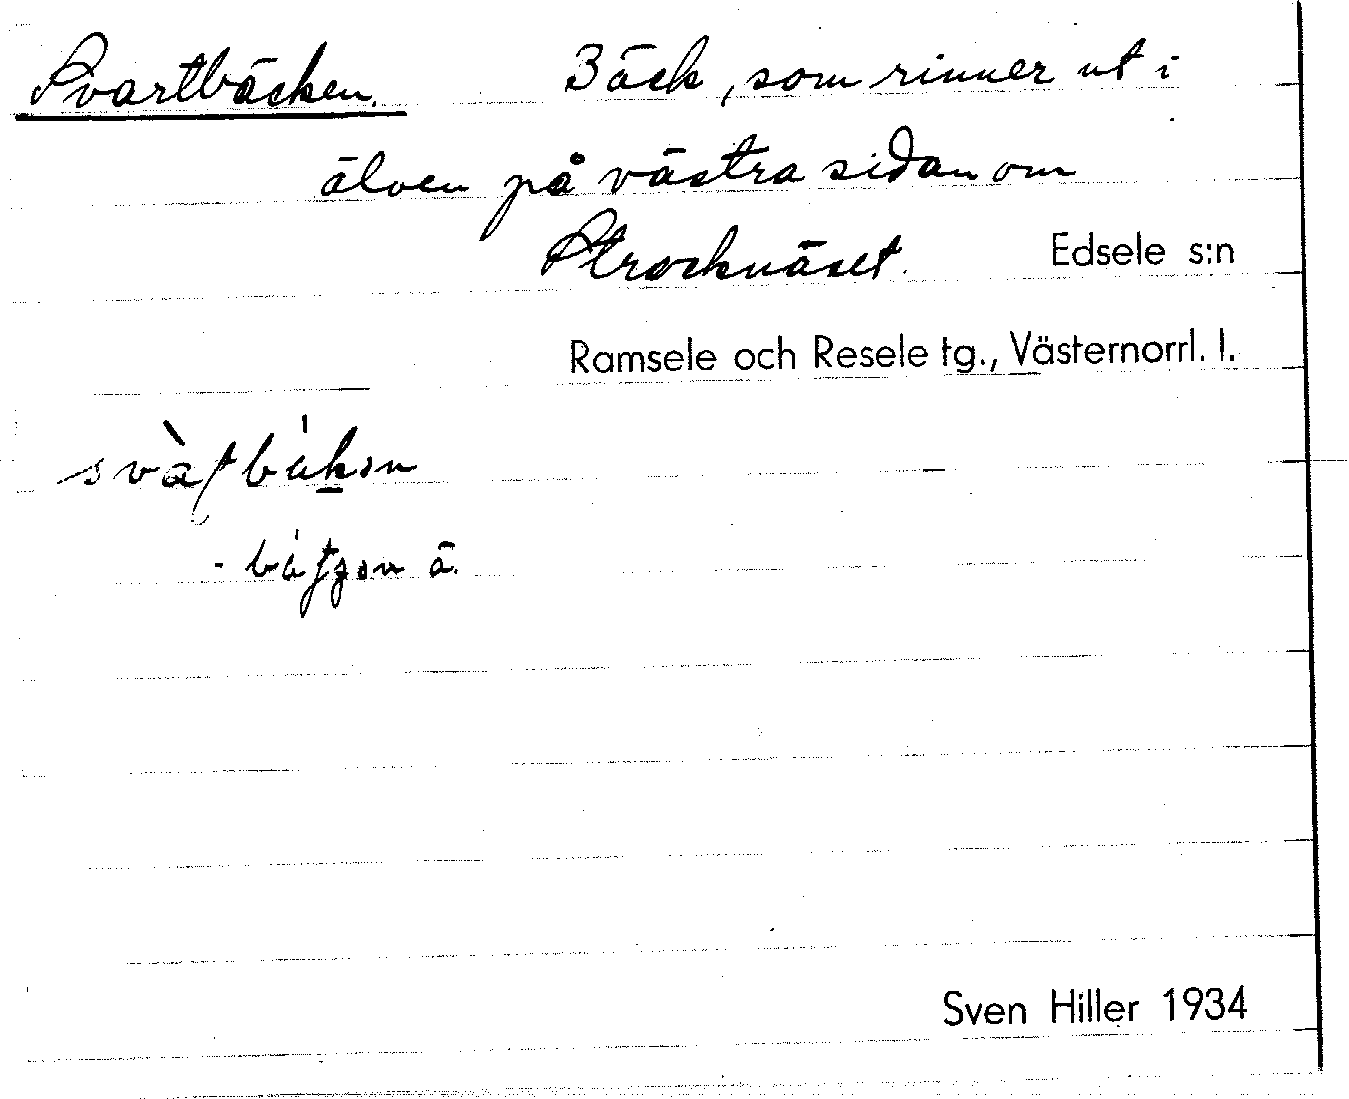 Svartbäcken. Bäck, som rinner ut i
älven på västra sidan om
Strocknäset. Edsele s:n
Ramsele och Resele tg., Västernorrl. l.
ä.
Sven Hiller 1934